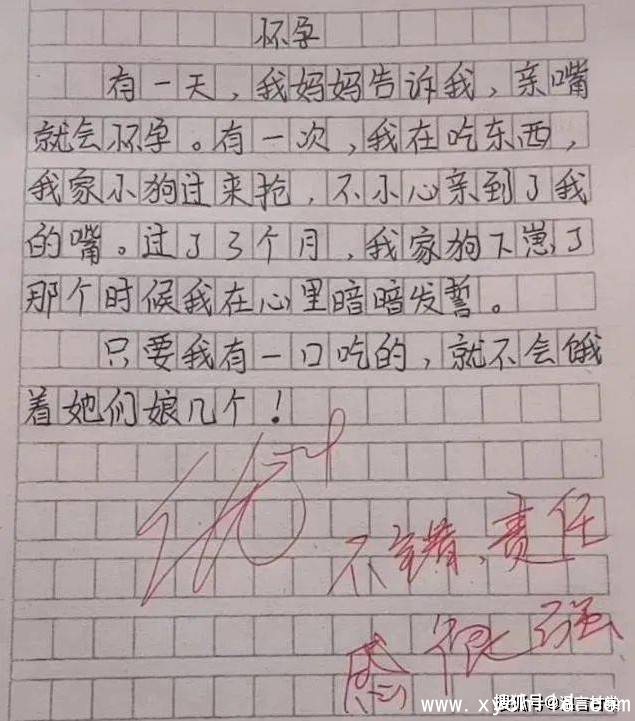 怀孕
有一天，我妈妈告诉我，亲嘴
就会怀孕。有一次，我在吃东西，
我家小狗过来抢，不小心亲到了我
的嘴。过了3个月，我家狗下崽了
那个时候我在心里暗暗发誓。
只要我有一口吃的，就不会饿
着她们娘几个！
不错，责任
感很强
搜狐号@